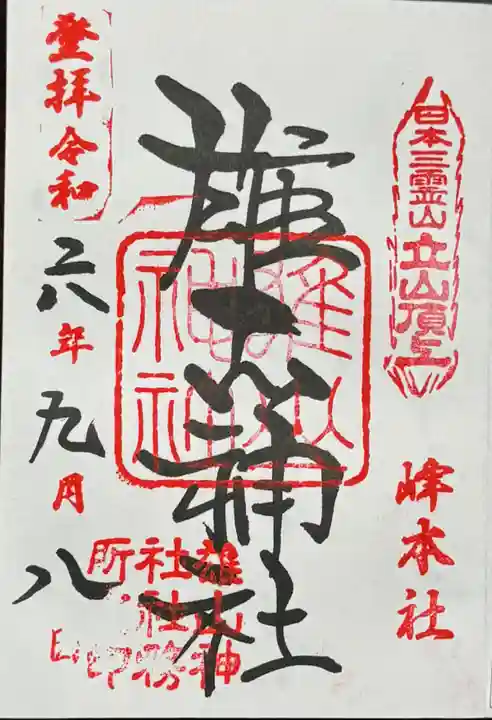 日本三霊山立山頂上
峰本社
雄山神社
雄山
神社
雄山神
社社務
所印
登拝令和
六年九月八